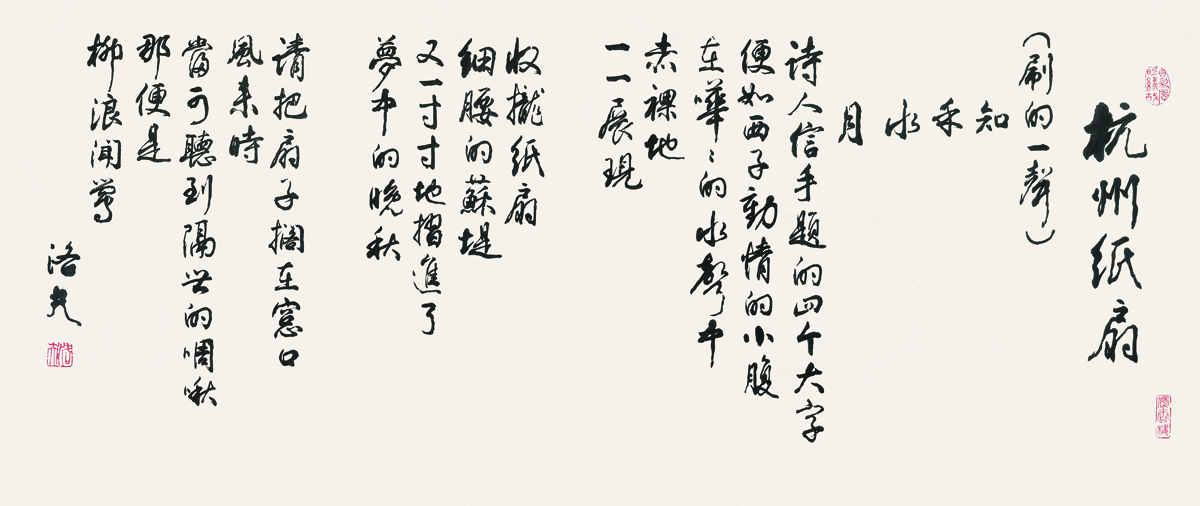 杭州紙扇
（刷的一聲）
知
禾
水
月
詩人信手題的四个大字
便如西子動情的小腹
在嘩嘩的水聲中
赤裸地
一一展現
收攏紙扇
細腰的蘇堤
又一寸寸地摺進了
夢中的晚秋
請把扇子擱在窗口
風來時
當可聽到隔世的啁啾
那便是
柳浪聞鶯
洛夫